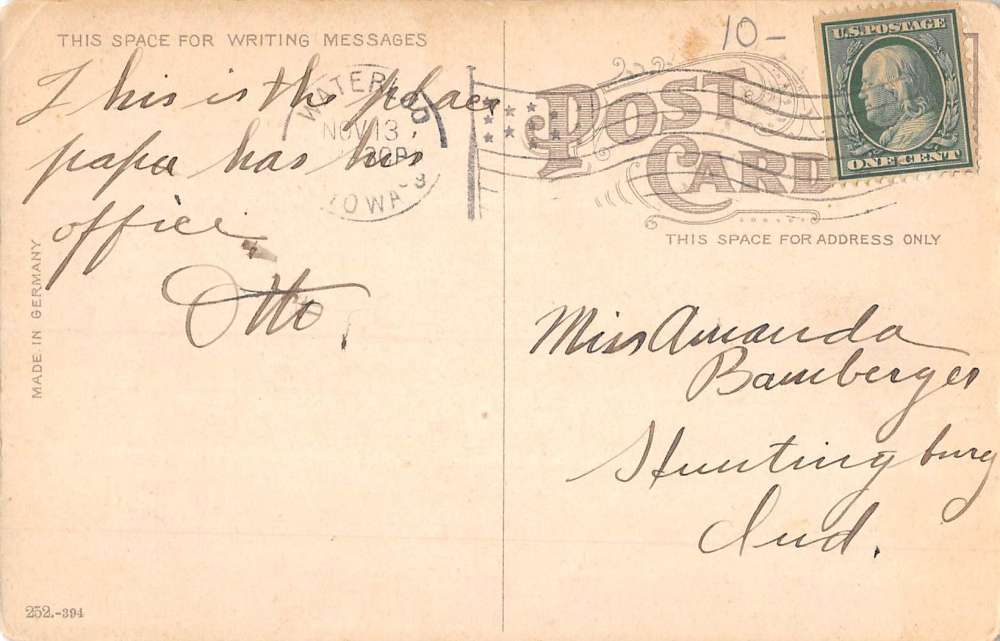 THIS SPACE FOR WRITING MESSAGES
This is the place
papa has his
office
Otto,
MADE IN GERMANY
252.-394
WATERLOO
NOV 13
IOWA
10-
POST
CARD
U.S. POSTAGE
ONE CENT
THIS SPACE FOR ADDRESS ONLY
Miss Amanda
Bamberger
Huntingburg
Ind.